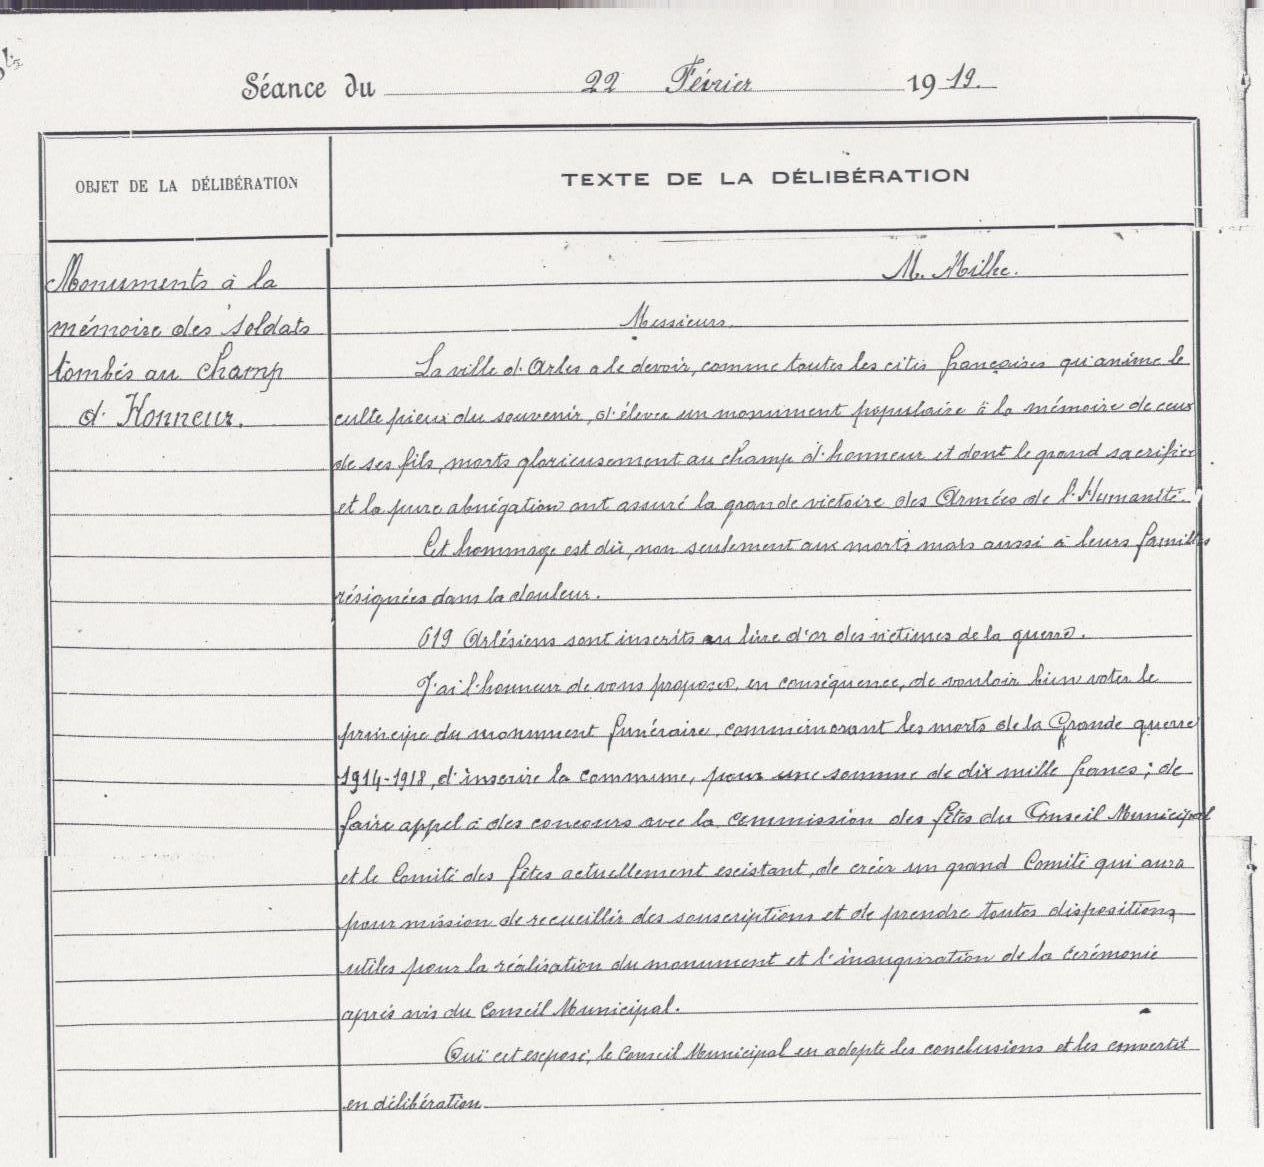 Séance du 22 Février 1919.
OBJET DE LA DÉLIBÉRATION
TEXTE DE LA DÉLIBÉRATION
Monuments à la
mémoire des soldats
tombés au champ
d'Honneur.
M.
Messieurs.
La ville d'Arles a le devoir, comme toutes les cités françaises qu'anime le
culte pieux du souvenir, d'élever un monument populaire à la mémoire de ceux
de ses fils, morts glorieusement au champ d'honneur et dont le grand sacrifice
et la pure abnégation ont assuré la grande victoire des Armées de l'Humanité.
Cet hommage est dû, non seulement aux morts mais aussi à leurs familles
résignées dans la douleur.
619 Arlésiens sont inscrits au livre d'or des victimes de la guerre.
J'ai l'honneur de vous proposer, en conséquence, de vouloir bien voter le
principe du monument funéraire, commémorant les morts de la Grande guerre
1914-1918, d'inscrire la commune, pour une somme de dix mille francs; de
faire appel à des concours avec la commission des fêtes du Conseil Municipal
et le Comité des fêtes actuellement existant, de créer un grand Comité qui aura
pour mission de recueillir des souscriptions et de prendre toutes dispositions
utiles pour la réalisation du monument et l'inauguration de la cérémonie
après avis du Conseil Municipal.
Ouï cet exposé, le Conseil Municipal en adopte les conclusions et les convertit
en délibération